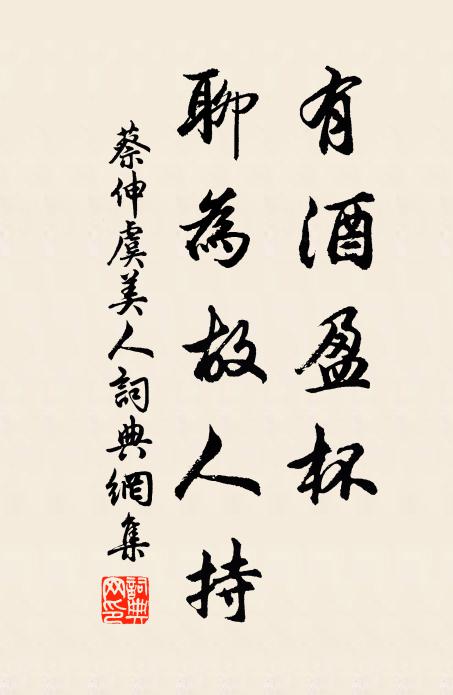 有酒盈杯
聊為故人持
蔡伸虞美人詞典網集
詞典網印